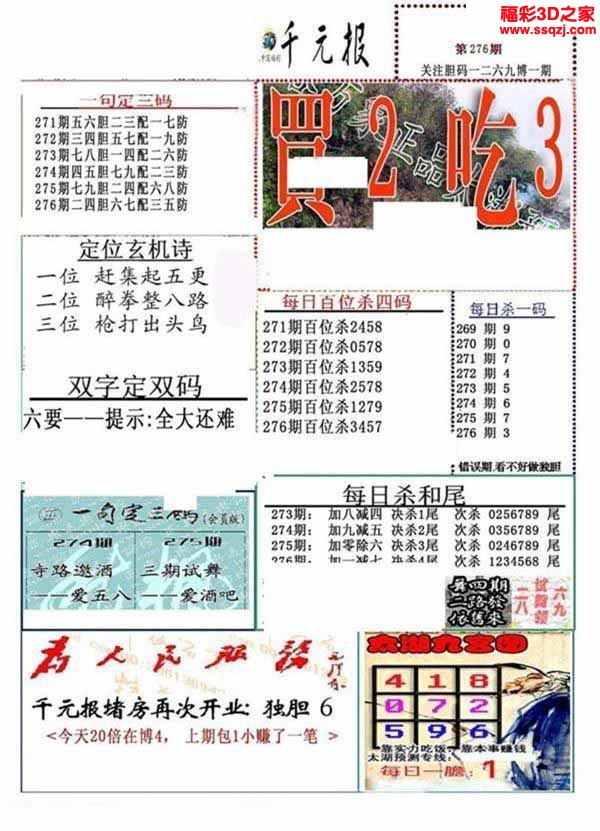 福彩3D之家
www.ssqzj.com
千元报
第276期
关注胆码一二六九博一期
一句定三码
271期五六胆二三配一七防
272期三四胆五七配一九防
273期七八胆一四配二六防
274期四五胆七九配二三防
275期七九胆二四配六八防
276期二四胆六七配三五防
買2吃3
定位玄机诗
一位 赶集起五更
二位 醉拳整八路
三位 枪打出头鸟
双字定双码
六要——提示:全大还难
每日百位杀四码
271期百位杀2458
272期百位杀0578
273期百位杀1359
274期百位杀2578
275期百位杀1279
276期百位杀3457
每日杀一码
269 期 9
270 期 0
271 期 7
272 期 4
273 期 5
274 期 6
275 期 7
276 期 3
错误期,看不好做独胆
一句定三码(会员版)
274期 275期
寺路邀酒 三期试舞
——爱五八 ——爱酒吧
每日杀和尾
273期: 加八减四 决杀1尾 次杀 0256789 尾
274期: 加九减五 决杀2尾 次杀 0356789 尾
275期: 加零除六 决杀3尾 次杀 0246789 尾
276期: 加一减七 决杀4尾 次杀 1234568 尾
为人民服务
千元报堵房再次开业: 独胆 6
<今天20倍在博4， 上期包1小赚了一笔 >
太湖九宫图
4 1 8
0 7 2
5 9 6
靠实力吃饭，靠本事赚钱
太湖预测专线:
每日一膽: 1